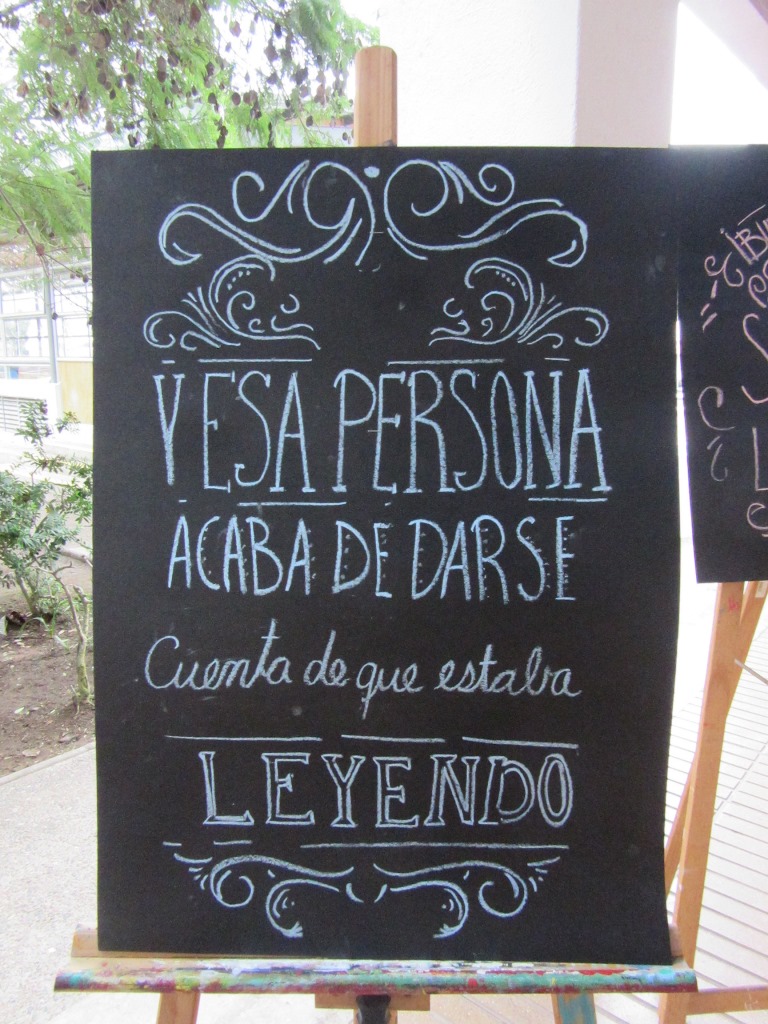 Y ESA PERSONA
ACABA DE DARSE
Cuenta de que estaba
LEYENDO